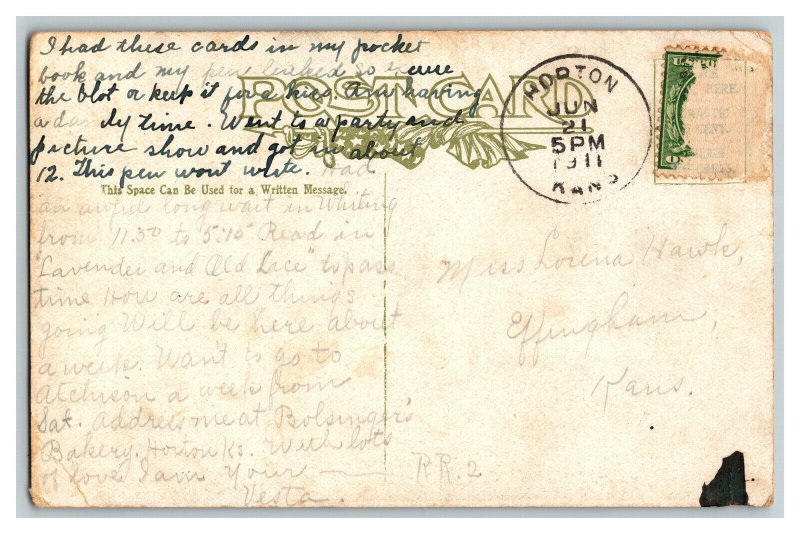 I had these cards in my pocket
book and my pen leaked so excuse
the blot or keep it for a kiss Am having
a dandy time. Went to a party and
picture show and got in about
12. This pen wont write. Had
an awful long wait in Whiting
from 11.30 to 5:15 Read in
"Lavender and Old Lace" to pass
time How are all things
going Will be here about
a week. Want to go to
Atchison a week from
Sat. Address me at Bolsinger's
Bakery. Horton Ks. With lots
of love I am Your
Vesta.
POST CARD
This Space Can Be Used for a Written Message.
HORTON
JUN
21
5PM
1911
KANS
Miss Lorena Hawk,
Effingham,
Kans.
RR. 2